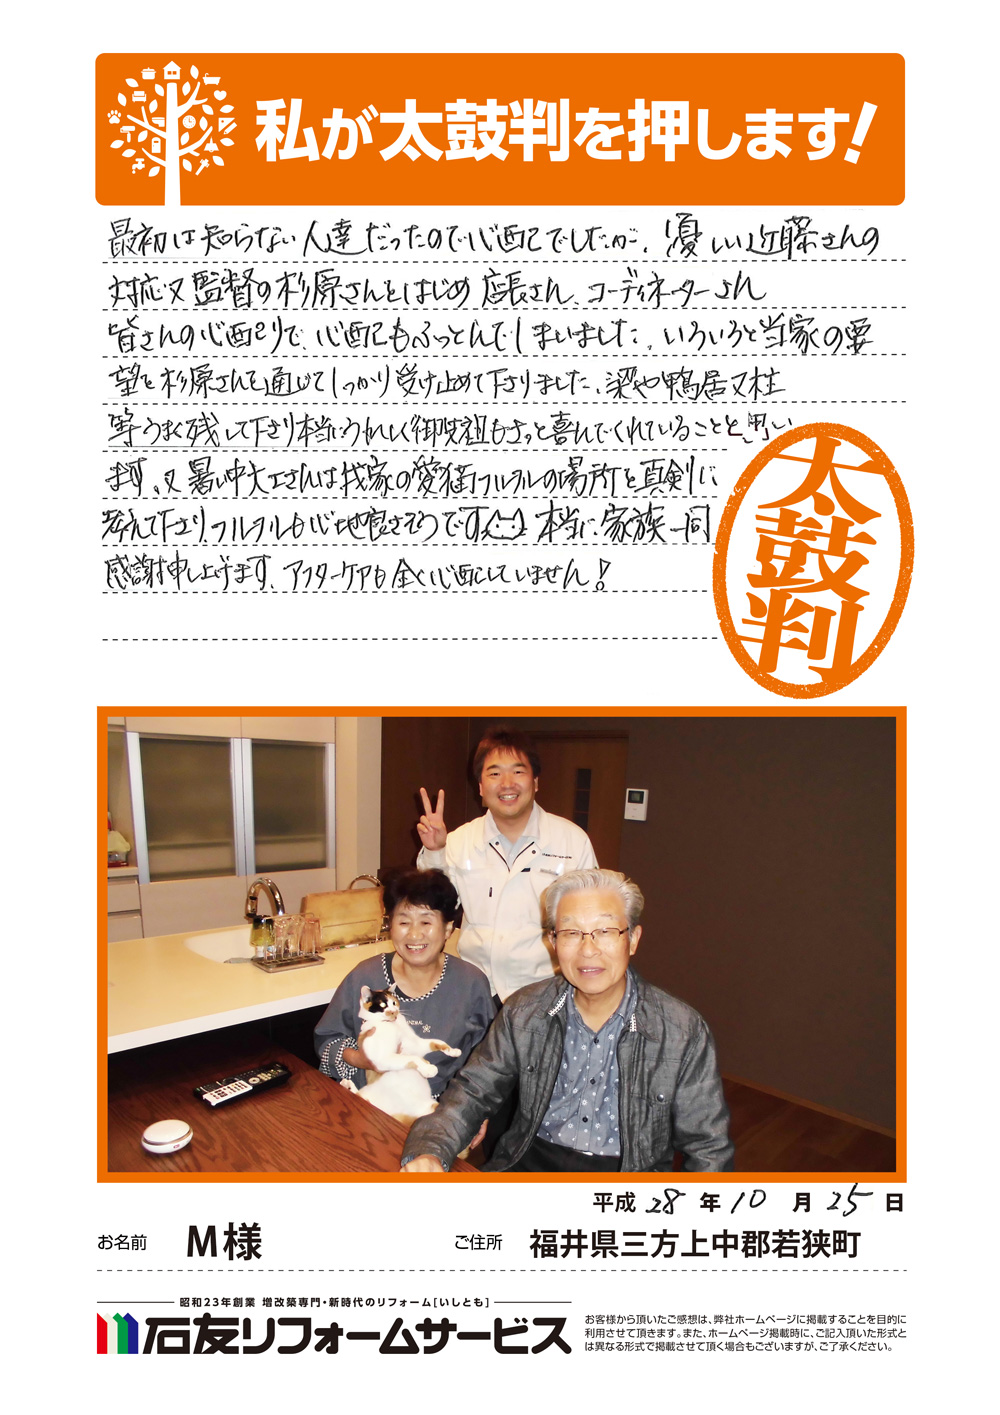 私が太鼓判を押します!
最初は知らない人達だったので心配でしたが、優しい近藤さんの
対応又監督の杉原さんをはじめ店長さん、コーディネーターさん
皆さんの心配りで、心配もふっとんでしまいました。いろいろと当家の要
望を杉原さんを通じてしっかり受け止めて下さりました、梁や鴨居又柱
等うまく残して下さり本当にうれしく御先祖もきっと喜んでくれていることと思い
ます。又暑い中大工さんは我家の愛猫フルフルの場所を真剣に
考えて下さりフルフルも心地良さそうです 本当に家族一同
感謝申し上げます、アフターケアも全く心配していません!
太鼓判
平成 28 年 10 月 25 日
お名前 M様 ご住所 福井県三方上中郡若狭町
昭和23年創業 増改築専門・新時代のリフォーム[いしとも]
石友リフォームサービス
お客様から頂いたご感想は、弊社ホームページに掲載することを目的に
利用させて頂きます。また、ホームページ掲載時に、ご記入頂いた形式と
は異なる形式で掲載させて頂く場合もございますが、ご了承ください。